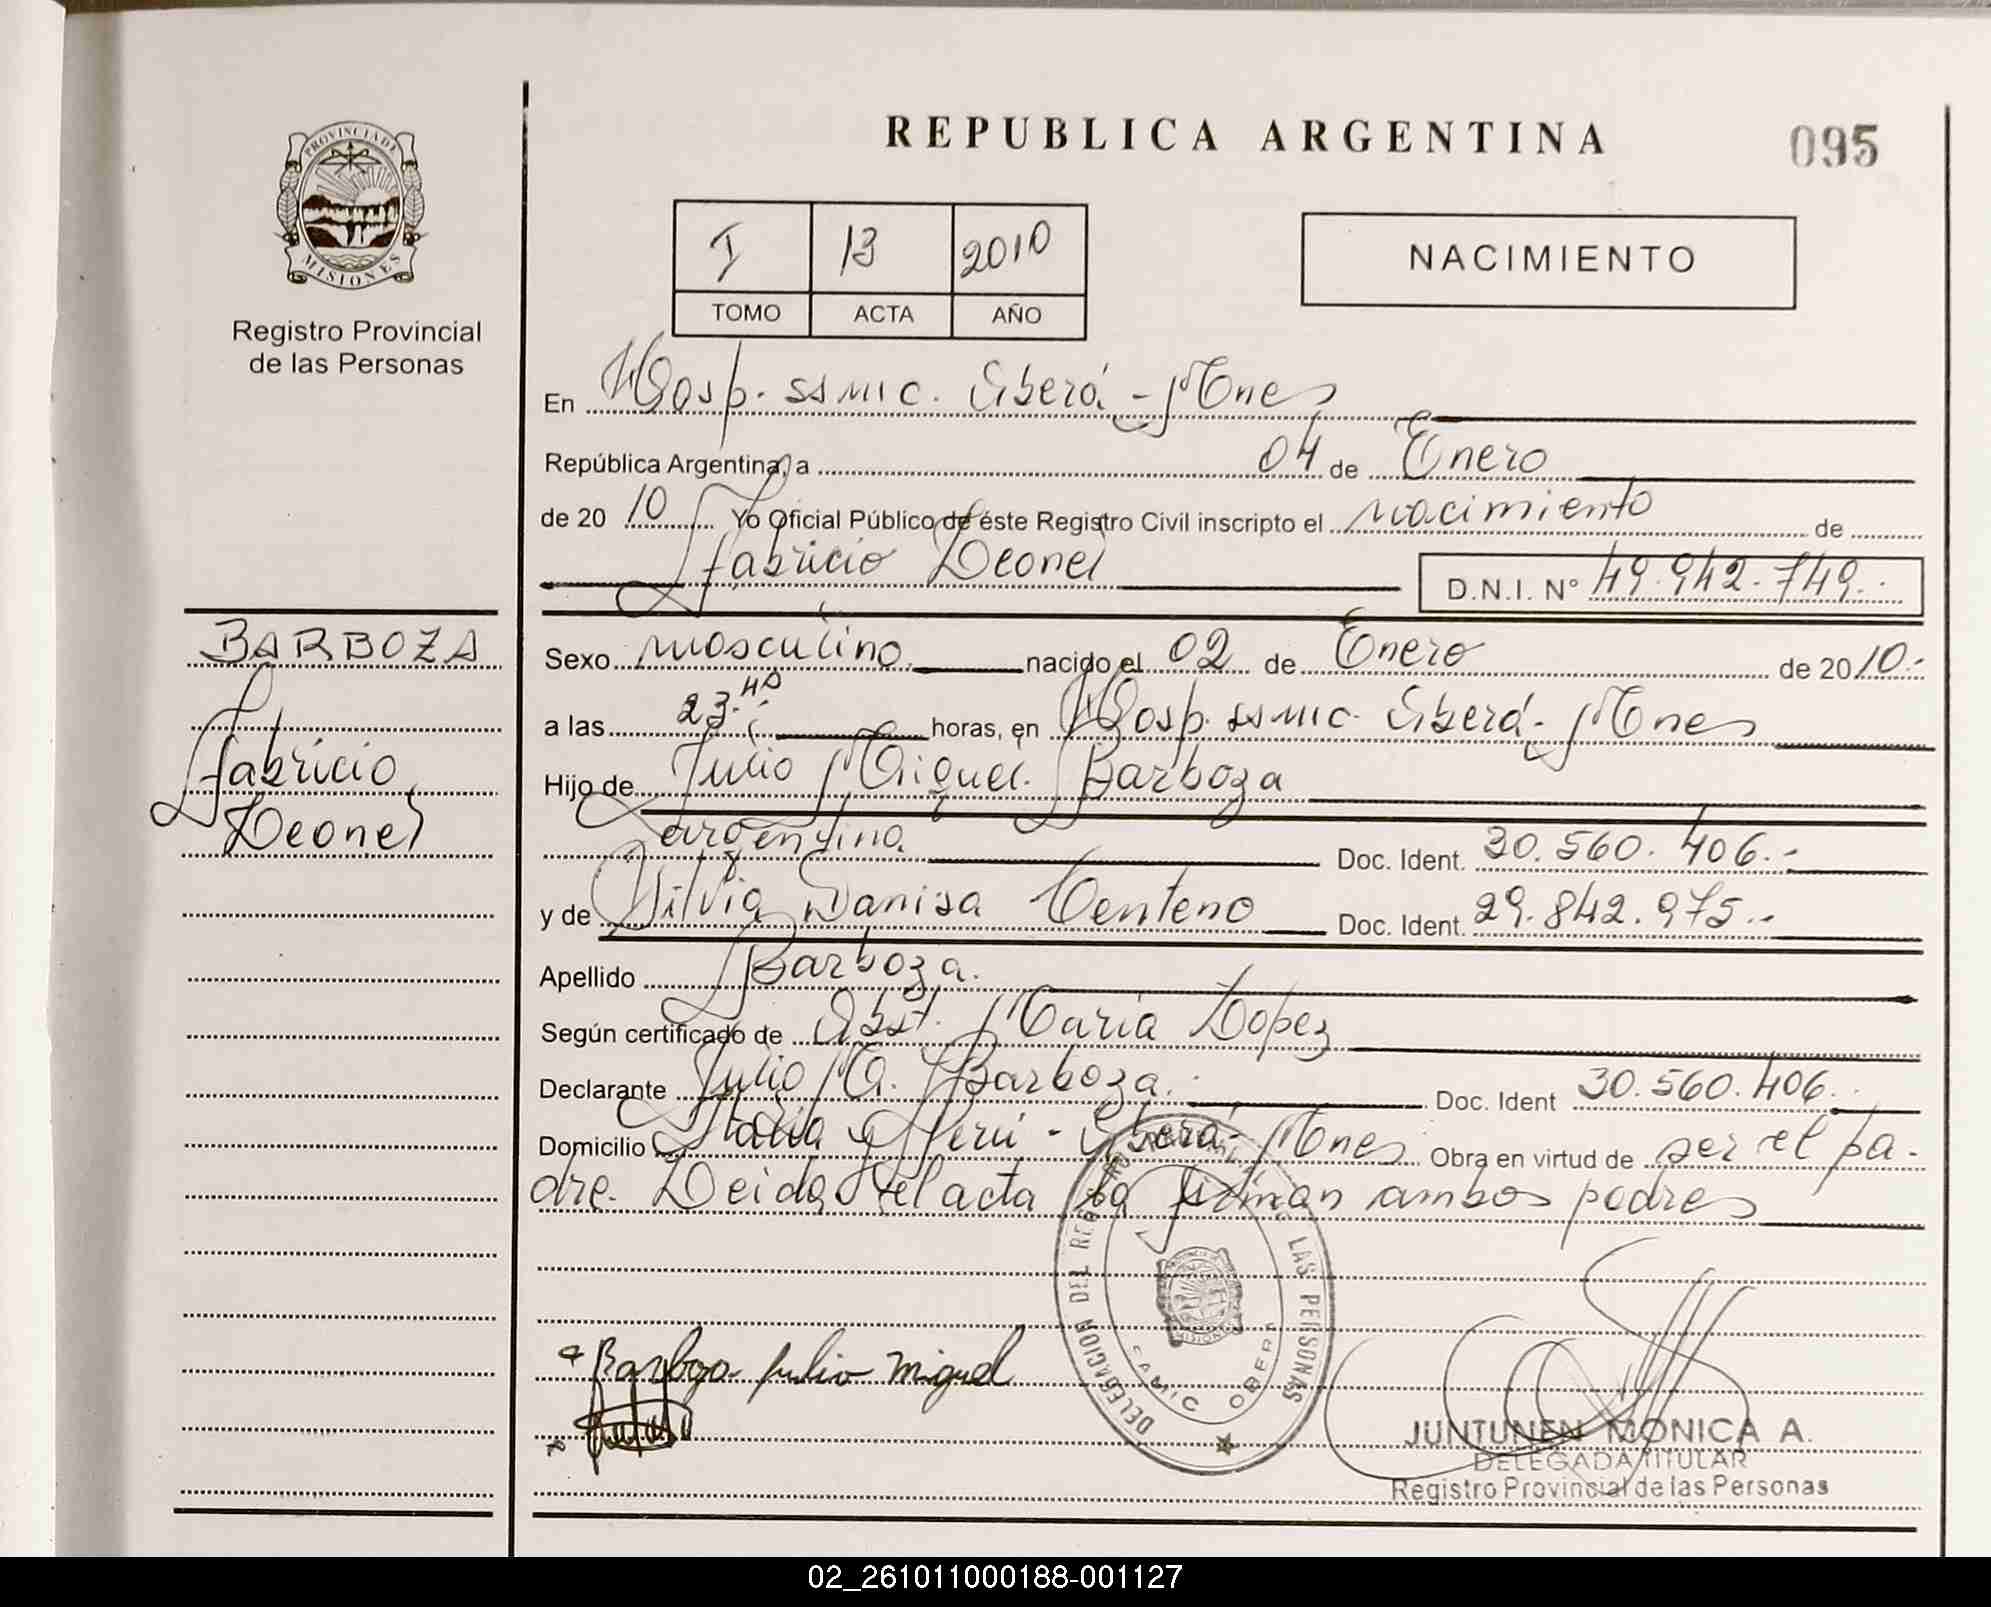 REPUBLICA ARGENTINA
095
PROVINCIA DE
MISIONES
Registro Provincial
de las Personas
I 13 2010
TOMO ACTA AÑO
NACIMIENTO
En Hosp. SSMIC. Oberá - Mnes
República Argentina, a 04 de Enero
de 20 10 Yo Oficial Público de éste Registro Civil inscripto el nacimiento de
Fabricio Leonel
D.N.I. N° 49.942.749.
BARBOZA
Fabricio
Leonel
Sexo masculino. nacido el 02 de Enero de 2010.-
a las 23.- Hs horas, en Hosp. SSMIC. Oberá - Mnes
Hijo de Julio Miguel Barboza
argentino. Doc. Ident. 30.560.406.-
y de Silvia Danisa Centeno Doc. Ident. 29.842.975.-
Apellido Barboza.
Según certificado de Obst. Maria Lopez
Declarante Julio M. Barboza. Doc. Ident 30.560.406.
Domicilio Italia y Perú - Oberá - Mnes Obra en virtud de ser el pa-
dre. Leida el acta la firman ambos padres
Barboza Julio Miguel
DELEGACION DEL REGISTRO LAS PERSONAS
MISIONES
SAMIC OBERA
JUNTUNEN MONICA A.
DELEGADA TITULAR
Registro Provincial de las Personas
02_261011000188-001127